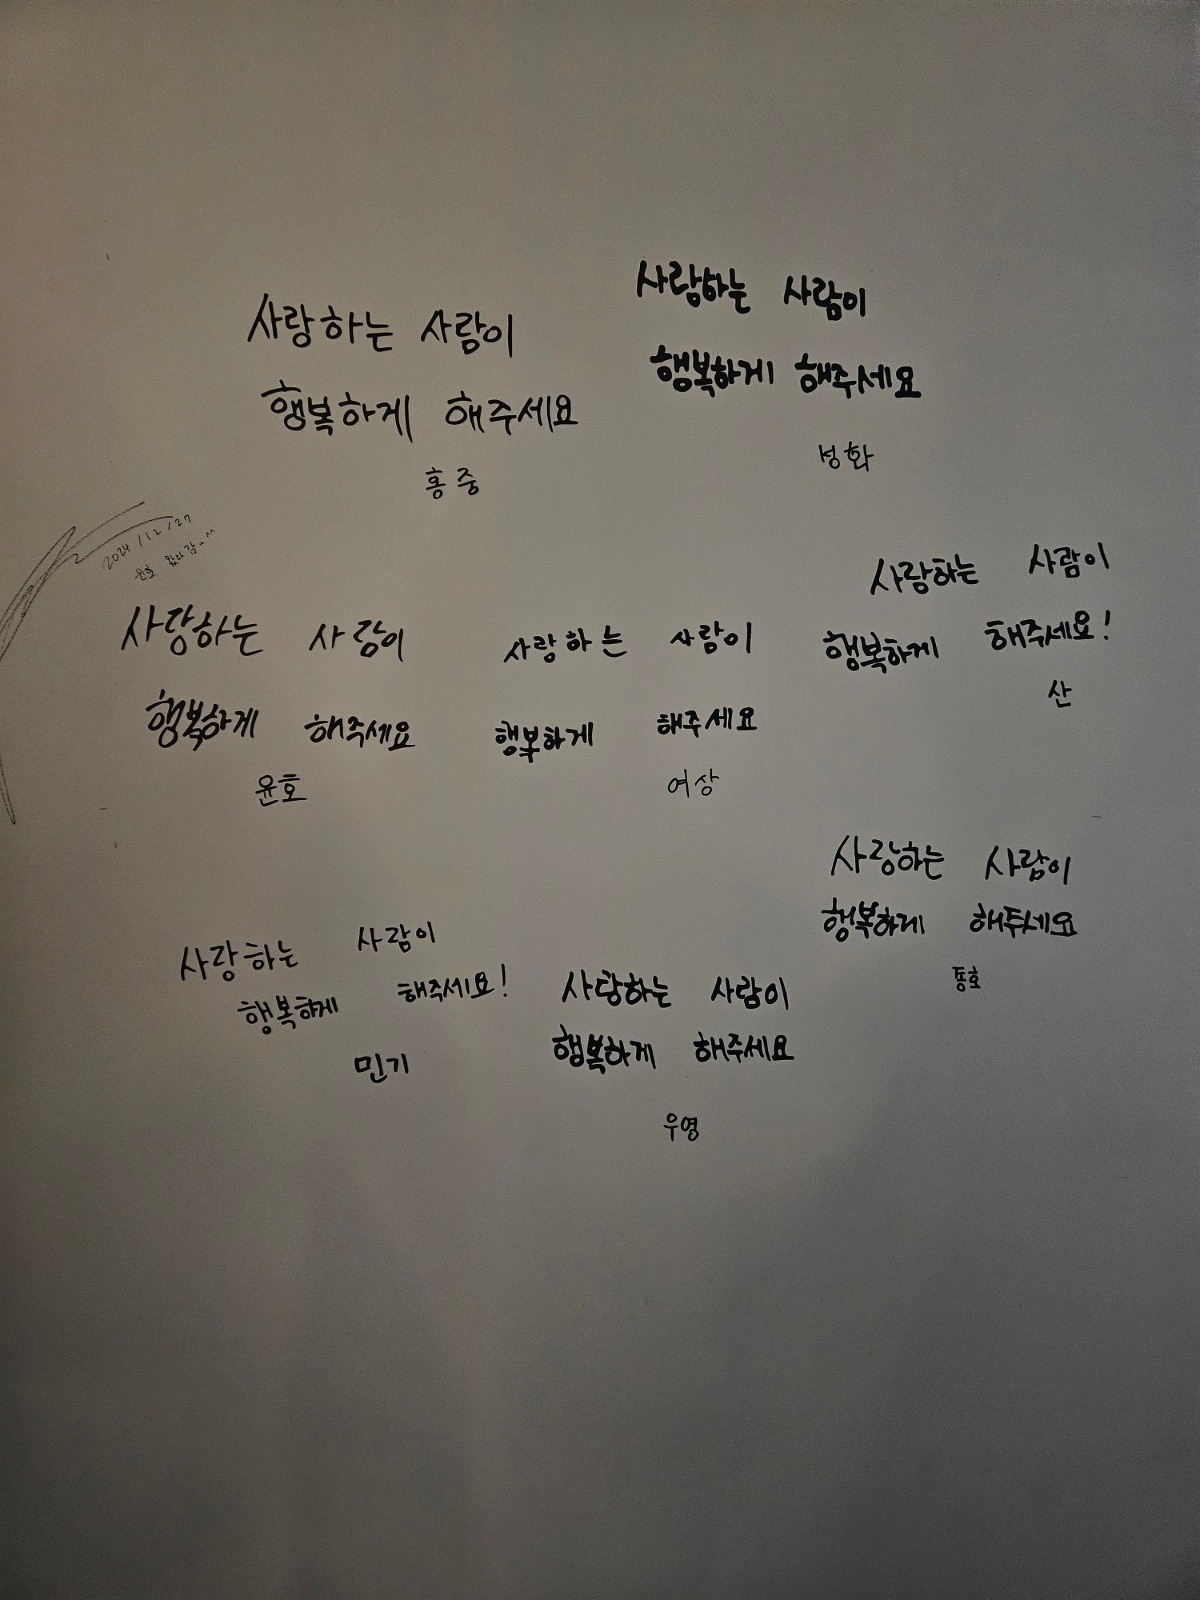 사랑하는 사람이
행복하게 해주세요
홍중
사랑하는 사람이
행복하게 해주세요
성화
2024/12/27
윤호 왔다감_^^
사랑하는 사람이
행복하게 해주세요
윤호
사랑하는 사람이
행복하게 해주세요
여상
사랑하는 사람이
행복하게 해주세요!
산
사랑하는 사람이
행복하게 해주세요!
민기
사랑하는 사람이
행복하게 해주세요
우영
사랑하는 사람이
행복하게 해주세요
종호